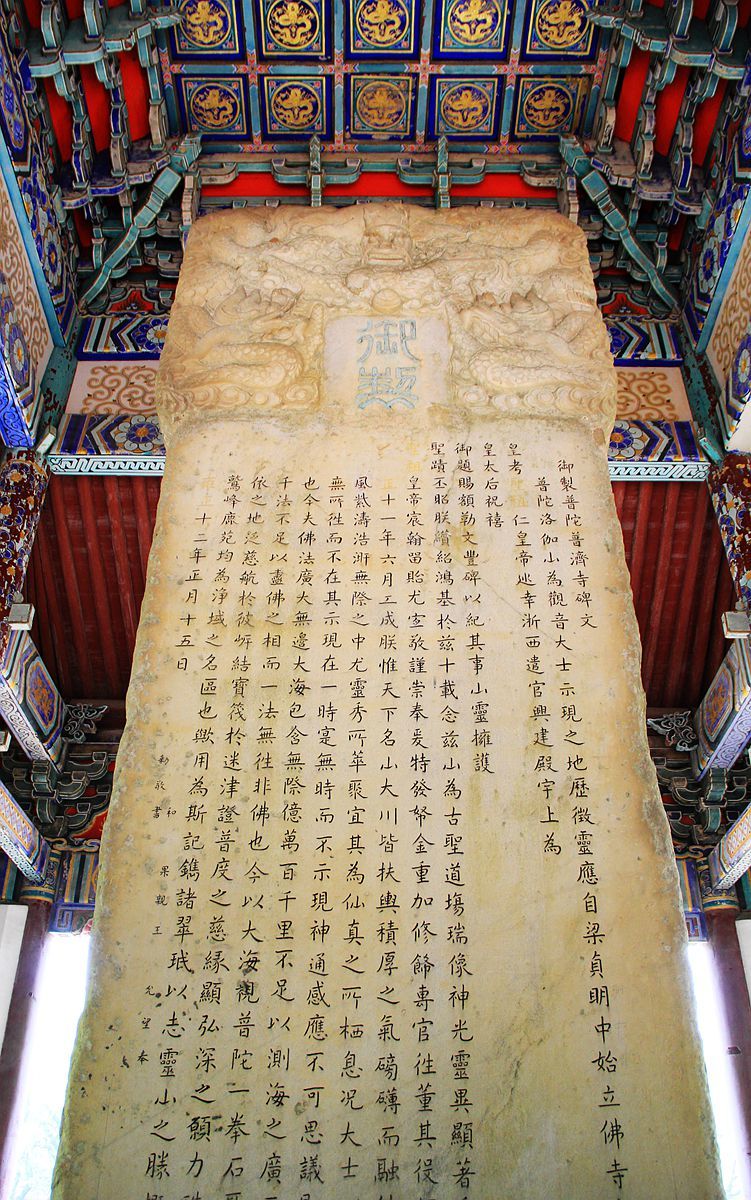 御製
御製普陀普濟寺碑文
普陀洛伽山為觀音大士示現之地歷徵靈應自梁貞明中始立佛寺
皇考 仁皇帝巡幸浙西遣官興建殿宇上為
皇太后祝禧
御題賜額勒文豐碑以紀其事山靈擁護
聖蹟丕昭朕纘紹鴻基於茲十載念茲山為古聖道場瑞像神光靈異顯著
皇帝宸翰留貽尤宜敬謹崇奉爰特發帑金重加修飾專官往董其役
正十一年六月工成朕惟天下名山大川皆扶輿積厚之氣磅礴而融
風紫濤浩淼無際之中尤靈秀所萃聚宜其為仙真之所栖息況大士
無所往而不在其示現在一時寔無時而不示現神通感應不可思議
也今夫佛法廣大無邊大海包含無際億萬百千里不足以測海之廣
千法不足以盡佛之相而一法無往非佛也今以大海視普陀一拳石
依之地泛慈航於彼岸結寶筏於迷津證普度之慈緣顯弘深之願力
鷲峰鹿苑均為淨域之名區也歟用為斯記鐫諸翠珉以志靈山之勝
十二年正月十五日
和 果親王 允 奉
勅敬書